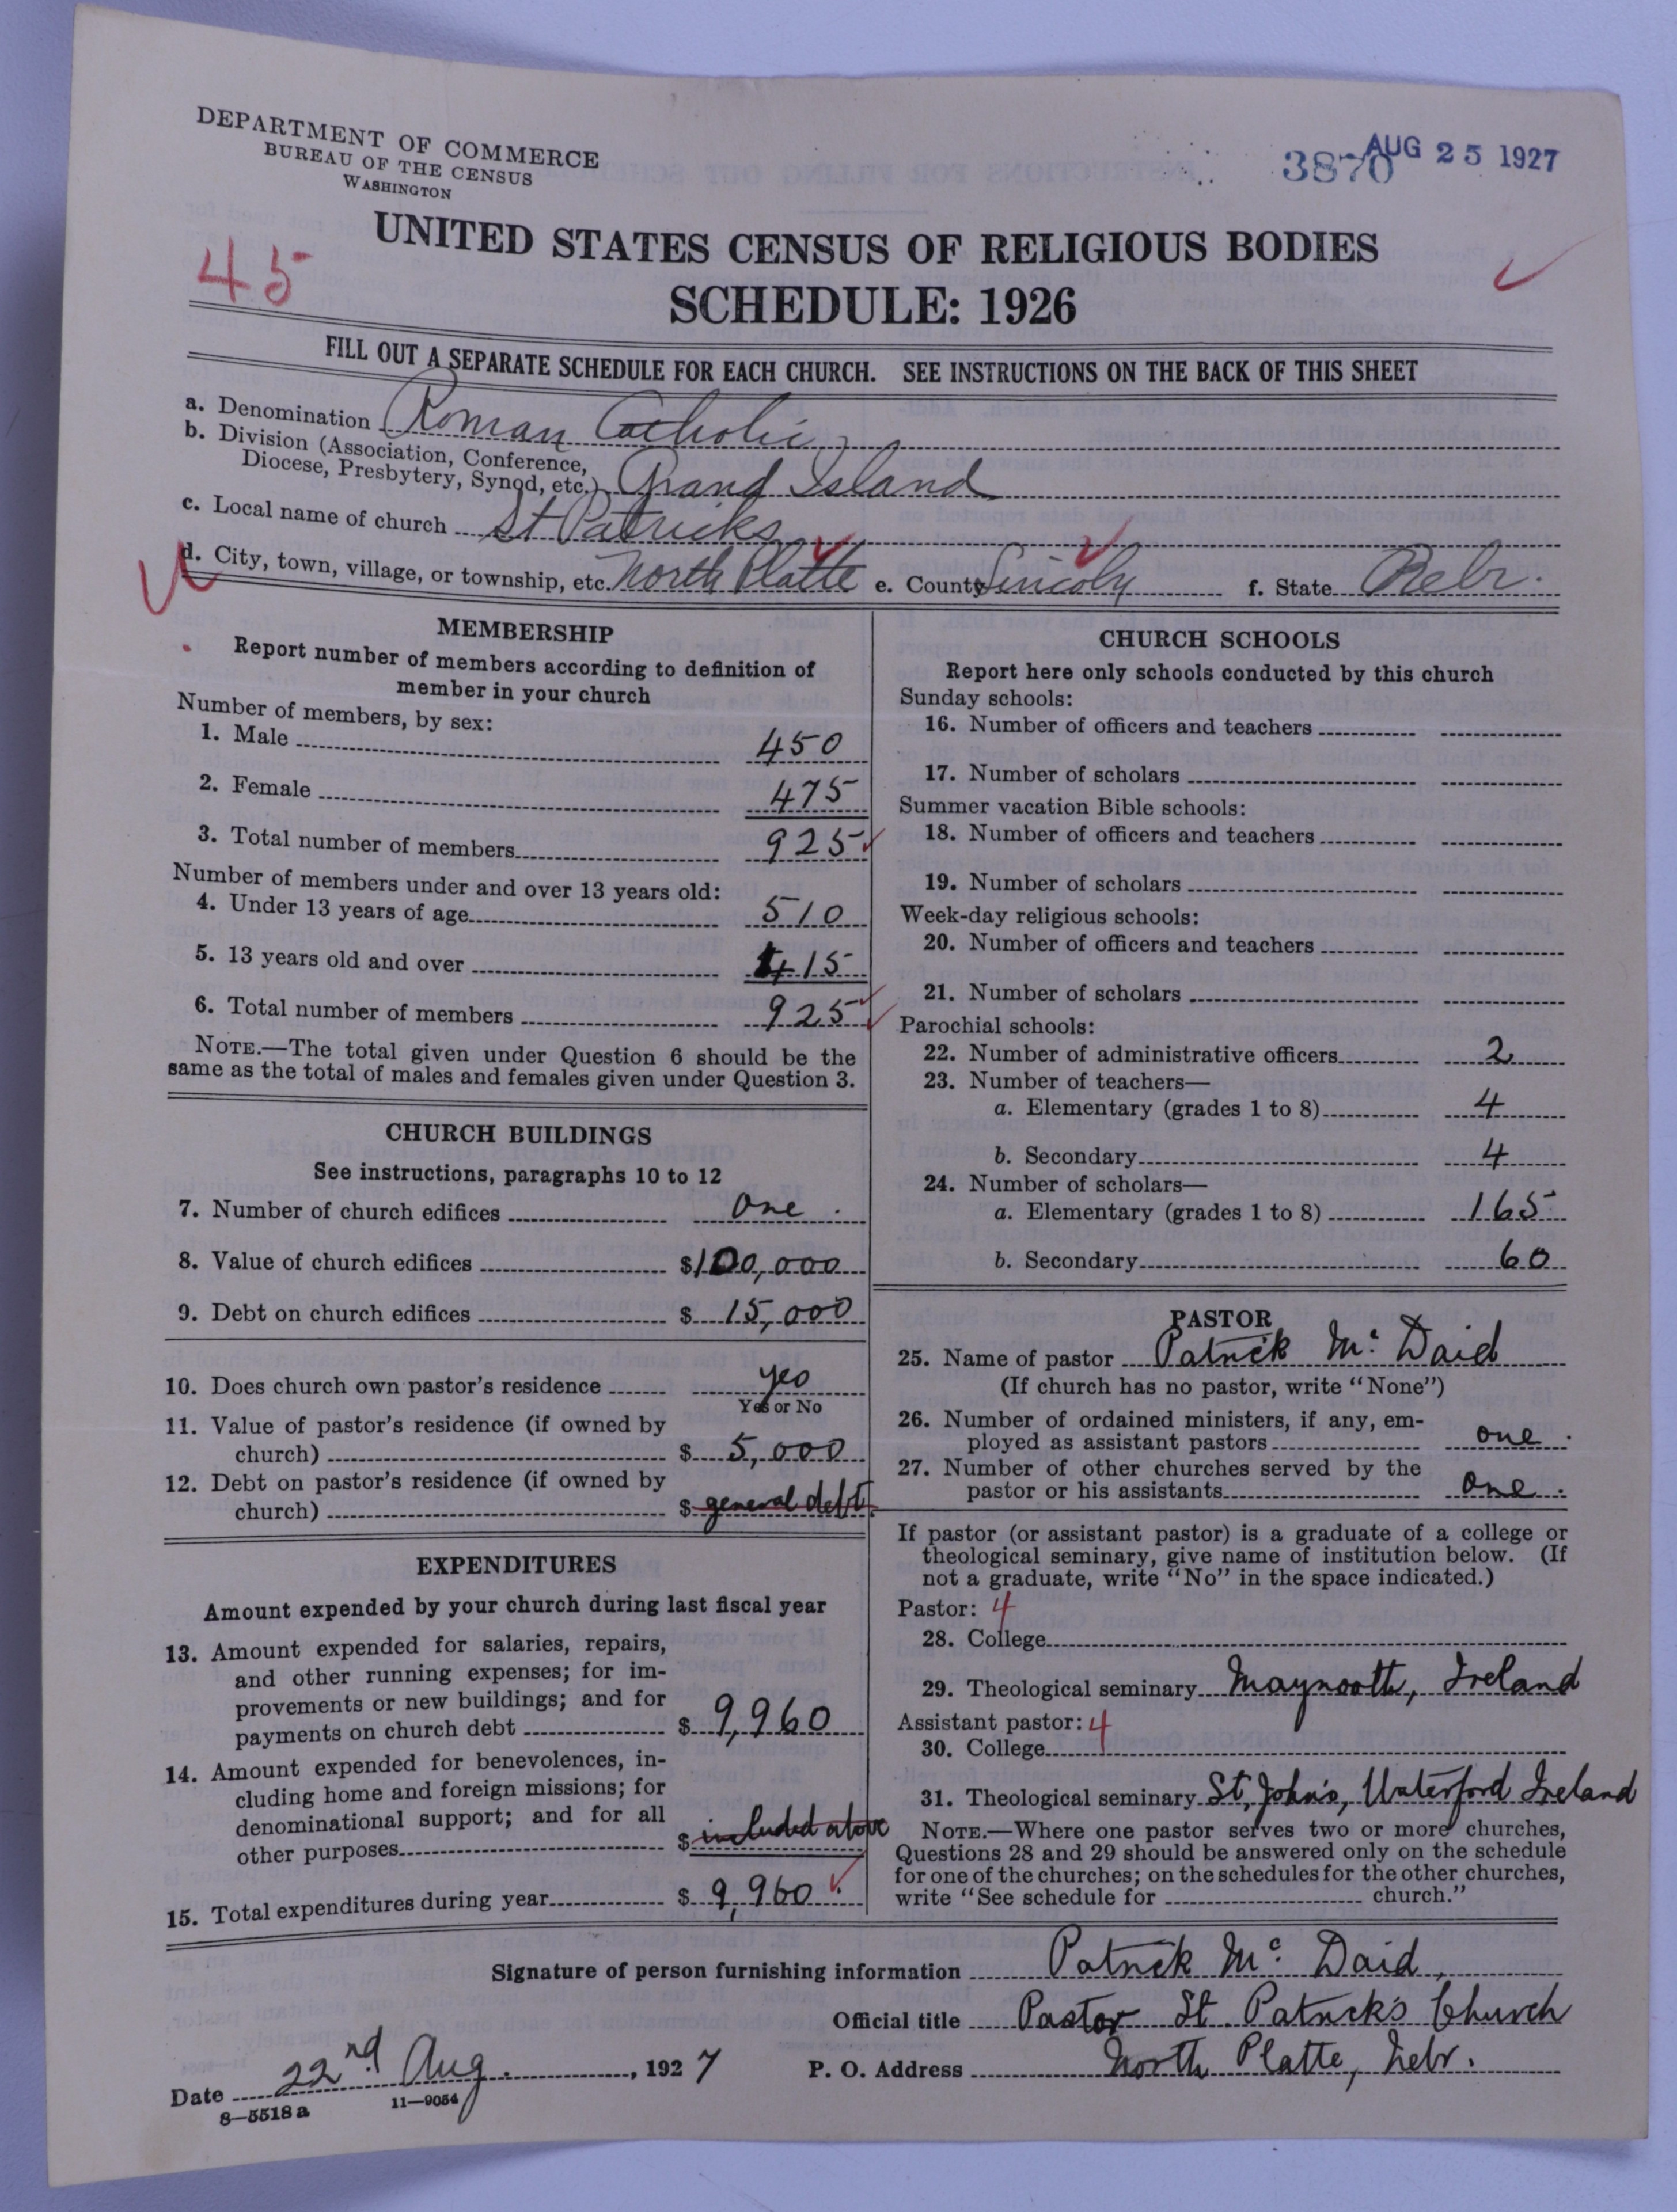 DEPARTMENT OF COMMERCE
BUREAU OF THE CENSUS
WASHINGTON
3870 AUG 25 1927
UNITED STATES CENSUS OF RELIGIOUS BODIES
45
SCHEDULE: 1926
FILL OUT A SEPARATE SCHEDULE FOR EACH CHURCH. SEE INSTRUCTIONS ON THE BACK OF THIS SHEET
a. Denomination Roman Catholic
b. Division (Association, Conference,
Diocese, Presbytery, Synod, etc.) Grand Island
c. Local name of church St Patricks
d. City, town, village, or township, etc. North Platte e. County Lincoln f. State Nebr.
MEMBERSHIP
Report number of members according to definition of
member in your church
Number of members, by sex:
1. Male 450
2. Female 475
3. Total number of members 925
Number of members under and over 13 years old:
4. Under 13 years of age 510
5. 13 years old and over 415
6. Total number of members 925
NOTE.—The total given under Question 6 should be the
same as the total of males and females given under Question 3.
CHURCH BUILDINGS
See instructions, paragraphs 10 to 12
7. Number of church edifices One.
8. Value of church edifices $100,000
9. Debt on church edifices $15,000
10. Does church own pastor's residence yes
Yes or No
11. Value of pastor's residence (if owned by
church) $5,000
12. Debt on pastor's residence (if owned by
church) $general debt.
EXPENDITURES
Amount expended by your church during last fiscal year
13. Amount expended for salaries, repairs,
and other running expenses; for im-
provements or new buildings; and for
payments on church debt $9,960
14. Amount expended for benevolences, in-
cluding home and foreign missions; for
denominational support; and for all
other purposes $included above
15. Total expenditures during year $9,960.
CHURCH SCHOOLS
Report here only schools conducted by this church
Sunday schools:
16. Number of officers and teachers
17. Number of scholars
Summer vacation Bible schools:
18. Number of officers and teachers
19. Number of scholars
Week-day religious schools:
20. Number of officers and teachers
21. Number of scholars
Parochial schools:
22. Number of administrative officers 2
23. Number of teachers—
a. Elementary (grades 1 to 8) 4
b. Secondary 4
24. Number of scholars—
a. Elementary (grades 1 to 8) 165
b. Secondary 60
PASTOR
25. Name of pastor Patrick Mc. Daid
(If church has no pastor, write "None")
26. Number of ordained ministers, if any, em-
ployed as assistant pastors one.
27. Number of other churches served by the
pastor or his assistants One.
If pastor (or assistant pastor) is a graduate of a college or
theological seminary, give name of institution below. (If
not a graduate, write "No" in the space indicated.)
Pastor: 4
28. College
29. Theological seminary Maynooth, Ireland
Assistant pastor: 4
30. College
31. Theological seminary St, John's, Waterford Ireland
NOTE.—Where one pastor serves two or more churches,
Questions 28 and 29 should be answered only on the schedule
for one of the churches; on the schedules for the other churches,
write "See schedule for church."
Signature of person furnishing information Patrick Mc. Daid,
Official title Pastor St. Patrick's Church
Date 22nd Aug., 1927 P. O. Address North Platte, Nebr.
8—5518a 11—9054